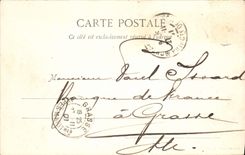 CARTE POSTALE
Ce côté est exclusivement réservé à l'adresse
Monsieur Paul Issard
Banque de France
à Grasse
GRASSE